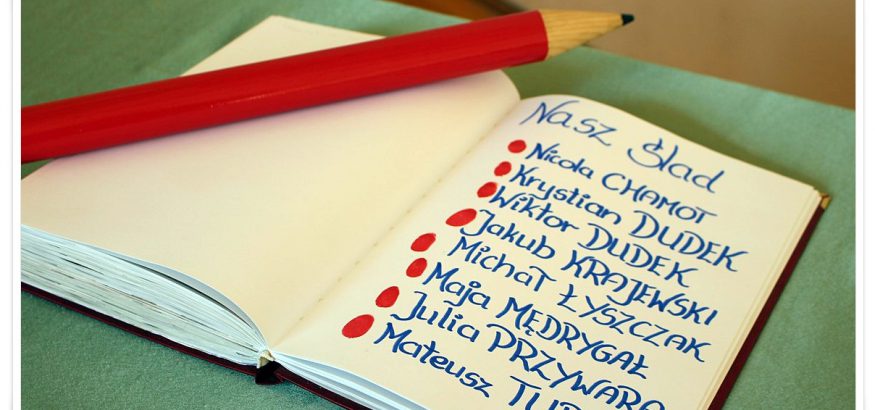 Nasz Ślad
Nicola CHAMOT
Krystian DUDEK
Wiktor DUDEK
Jakub KRAJEWSKI
Michał ŁYSZCZAK
Maja MĘDRYGAŁ
Julia PRZYWARA
Mateusz